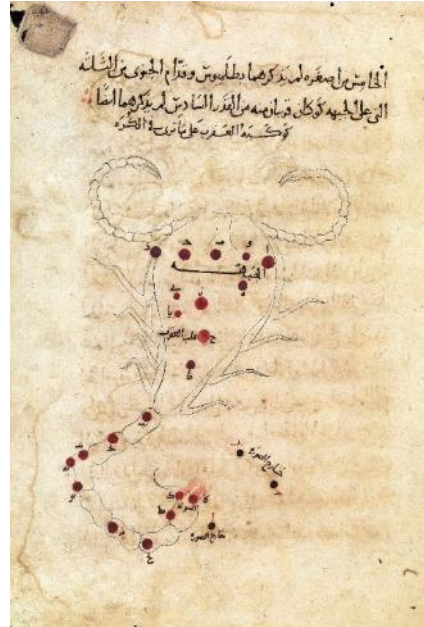 الخامس من اصغره لم يذكرهما بطلميوس وقدام الجنوبى من الثلثه
التى على الجبهه كوكبان قريبان منه من القدر السادس لم يذكرهما ايضا
كوكبة العقرب على ما ترى فى الكره
الجبهة
قلب العقرب
خارج الصورة
الشولة
خارج الصورة